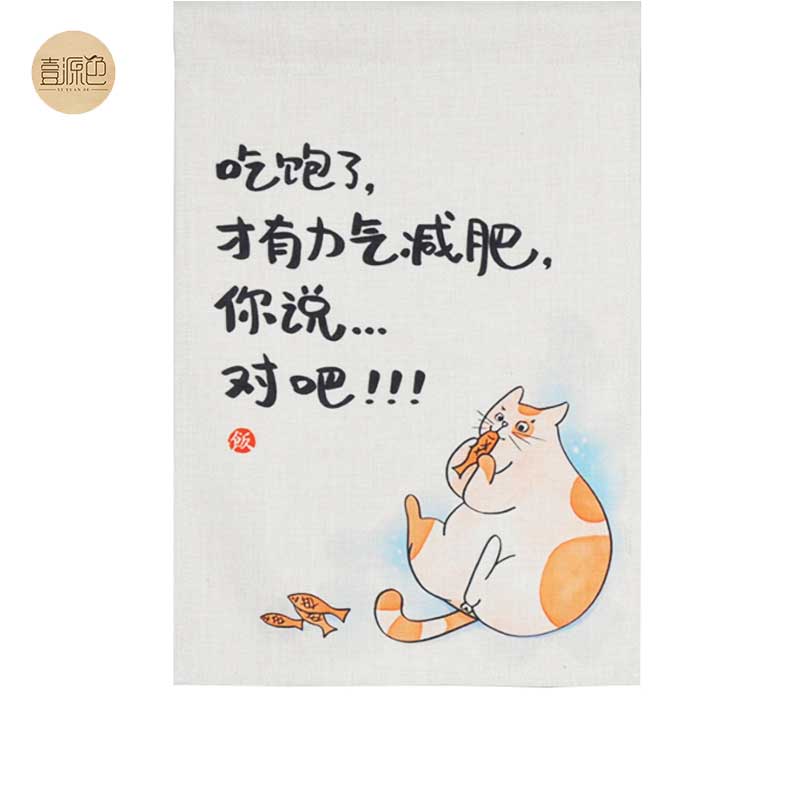 壹源色
YI YUAN SE
吃饱了,
才有力气减肥,
你说...
对吧!!!
飯